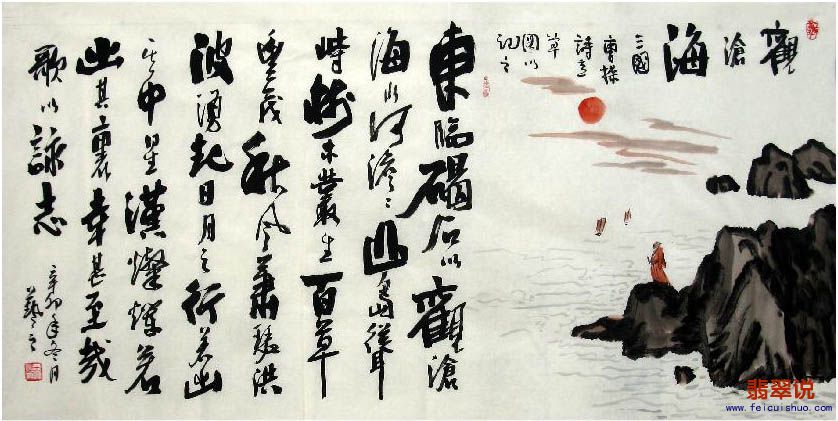 觀滄海
三國
曹操
詩意
草
圖以
記之
東臨碣石以觀滄
海水河澹〻山島聳
峙樹木叢生百草
豐茂秋風蕭瑟洪
波湧起日月之行若出
其中星漢燦煇若
出其裏幸甚至哉
歌以詠志
辛卯年冬月
翡翠说
www.feicuishuo.com